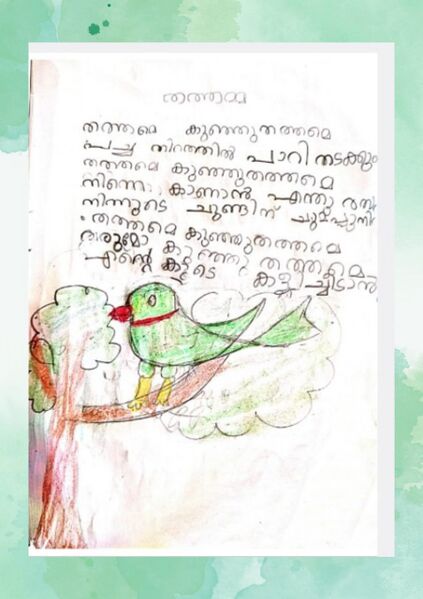 തത്തമ്മ
തത്തമെ കുഞ്ഞുതത്തമെ
പച്ച നിറത്തിൽ പാറി നടക്കും
തത്തമെ കുഞ്ഞുതത്തമെ
നിന്നെ കാണാൻ എന്തു
നിന്നുടെ ചുണ്ടിന്
തത്തമെ കുഞ്ഞുതത്തമെ
വരുമോ കുഞ്ഞു തത്തമെ
എൻ്റെ കൂടെ കളിച്ചിടാൻ